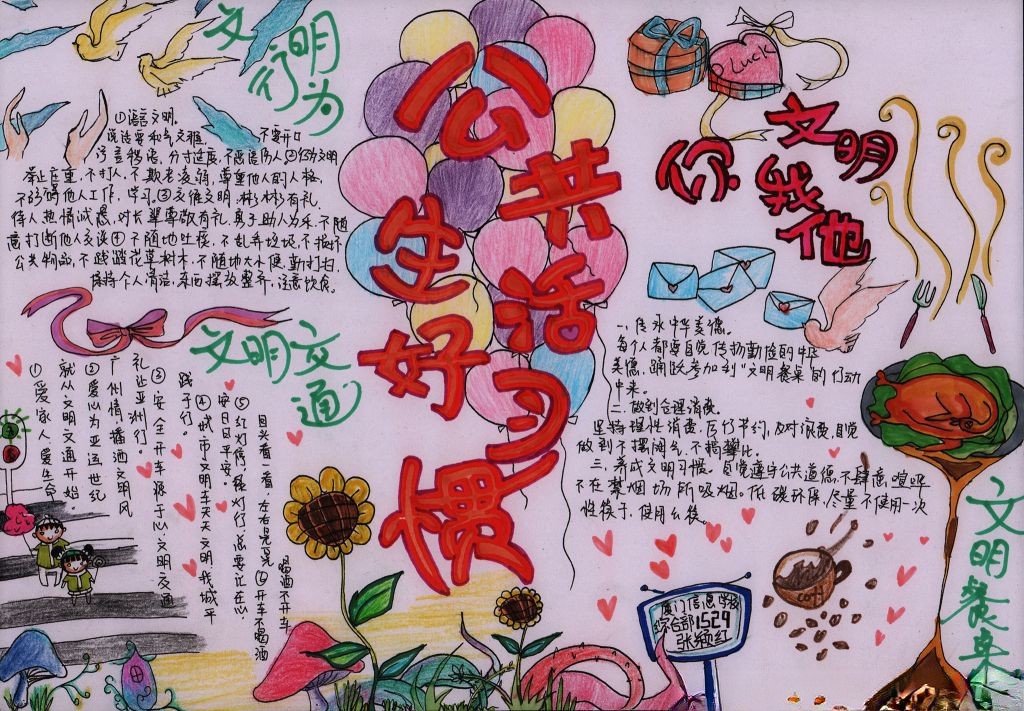 文明
行为
①语言文明。
说话要和气文雅， 不要开口
污言秽语，分寸过度，不恶语伤人②行动文明
举止庄重，不打人，不欺老凌弱，尊重他人的人格，
不妨碍他人工作，学习③交往文明，彬彬有礼，
待人热情诚恳，对长辈尊敬有礼，真于助人为乐，不随
意打断他人交谈④不随地吐痰，不乱弃垃圾，不损坏
公共物品，不践踏花草树木，不随地大小便，勤打扫，
保持个人清洁，东西摆放整齐，注意饮食。
公共
生活
好习
惯
Luck
文明
你我他
一、传承中华美德。
每个人都要自觉传扬勤俭的中华
美德，踊跃参加到“文明餐桌”的行动
中来。
二、做到合理消费。
坚持理性消费，厉行节约，反对浪费，自觉
做到不摆阔气，不搞攀比。
三、养成文明习惯。自觉遵守公共道德，不肆意喧哗
不在禁烟场所吸烟。低碳环保，尽量不使用一次
性筷子，使用公筷。
文明交通
①爱家人爱生命
就从文明交通开始
②爱心为亚运世纪
广州情播洒文明风
礼让亚洲行。
③安全开车源于心，文明交通
践于行。
④城市文明车天天文明我城平
安日日平安。
⑤红灯停，绿灯行，总要让在心
回头看一看，左右是否
⑥开车不喝酒
喝酒不开车
厦门信息学校
综合部1529
张颖红
文明餐桌